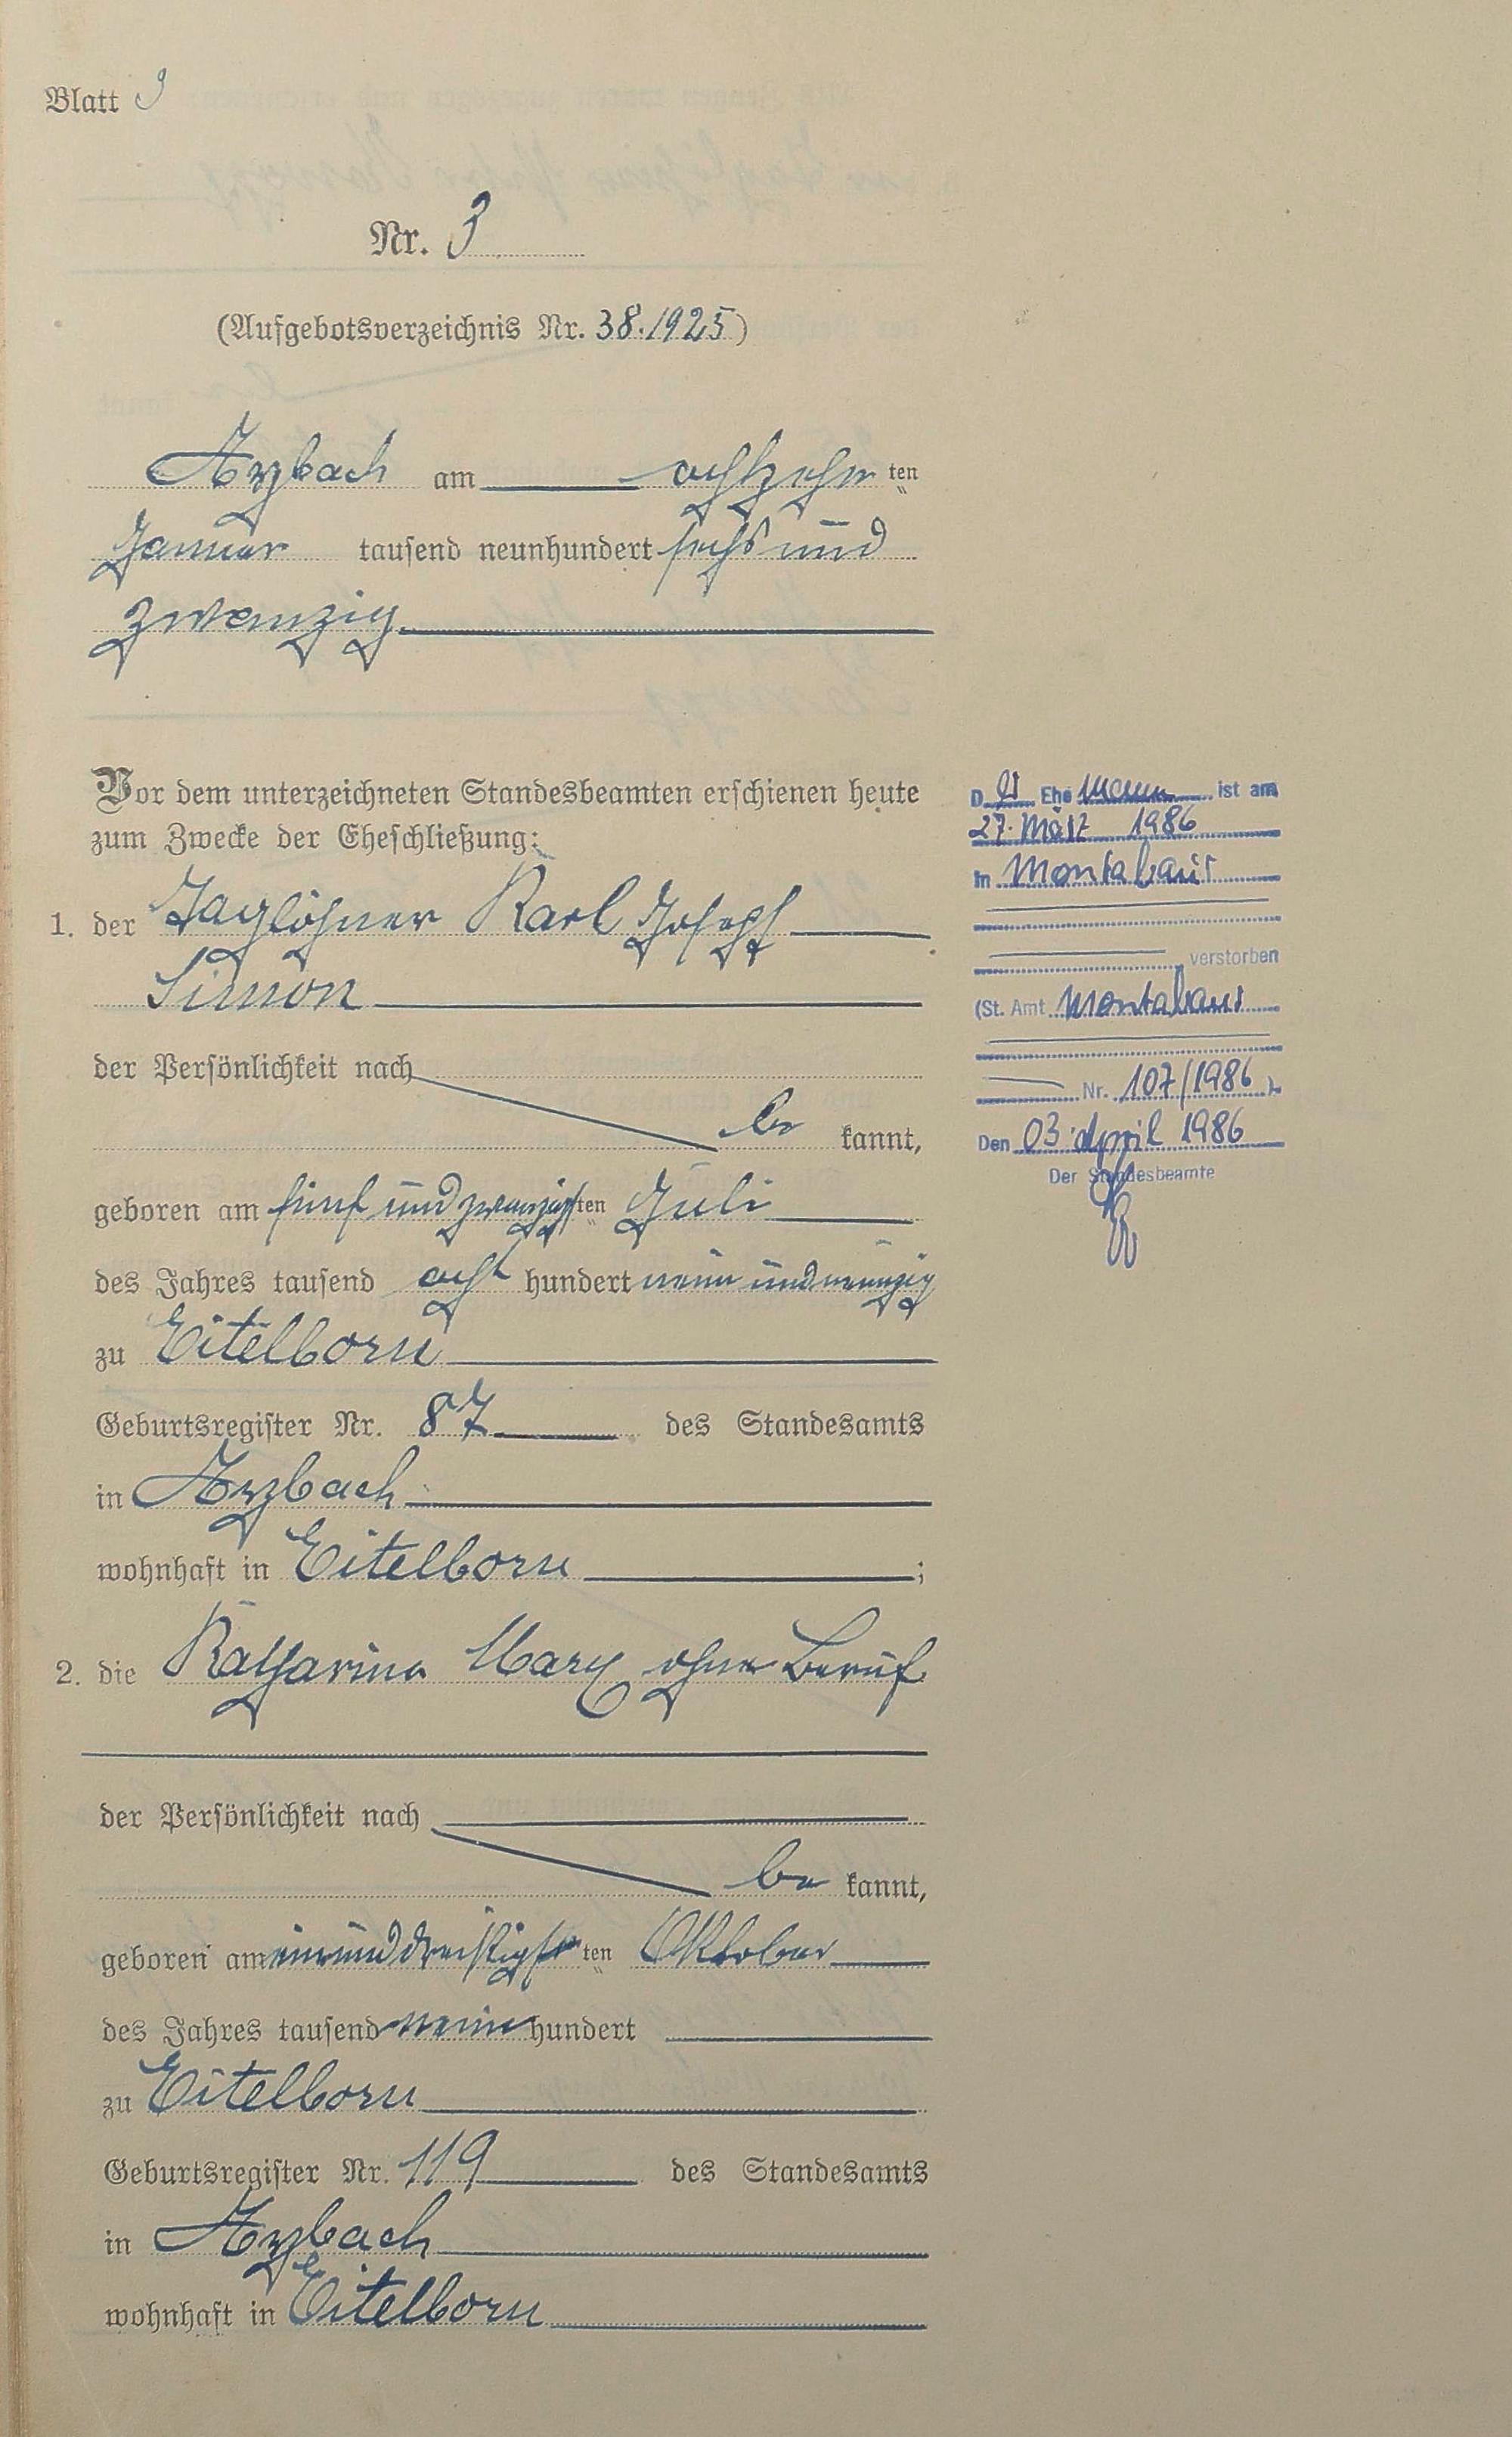 Blatt 3
Nr. 3
(Aufgebotsverzeichnis Nr. 38.1925)
Arzbach am achtzehn ten
Januar tausend neunhundert sechs und
zwanzig
Vor dem unterzeichneten Standesbeamten erschienen heute
zum Zwecke der Eheschließung:
1. der Taglöhner Karl Joseph
Simon
der Persönlichkeit nach
be kannt,
geboren am fünf und zwanzigsten Juli
des Jahres tausend acht hundert neun und neunzig
zu Eitelborn
Geburtsregister Nr. 87 des Standesamts
in Arzbach
wohnhaft in Eitelborn ;
2. die Katharina Marx ohne Beruf
der Persönlichkeit nach
be kannt,
geboren am einunddreißigsten Oktober
des Jahres tausend neun hundert
zu Eitelborn
Geburtsregister Nr. 119 des Standesamts
in Arzbach
wohnhaft in Eitelborn
Der Ehemann ist am
27. März 1986
in Montabaur
verstorben
(St. Amt Montabaur
Nr. 107/1986)
Den 03. April 1986
Der Standesbeamte